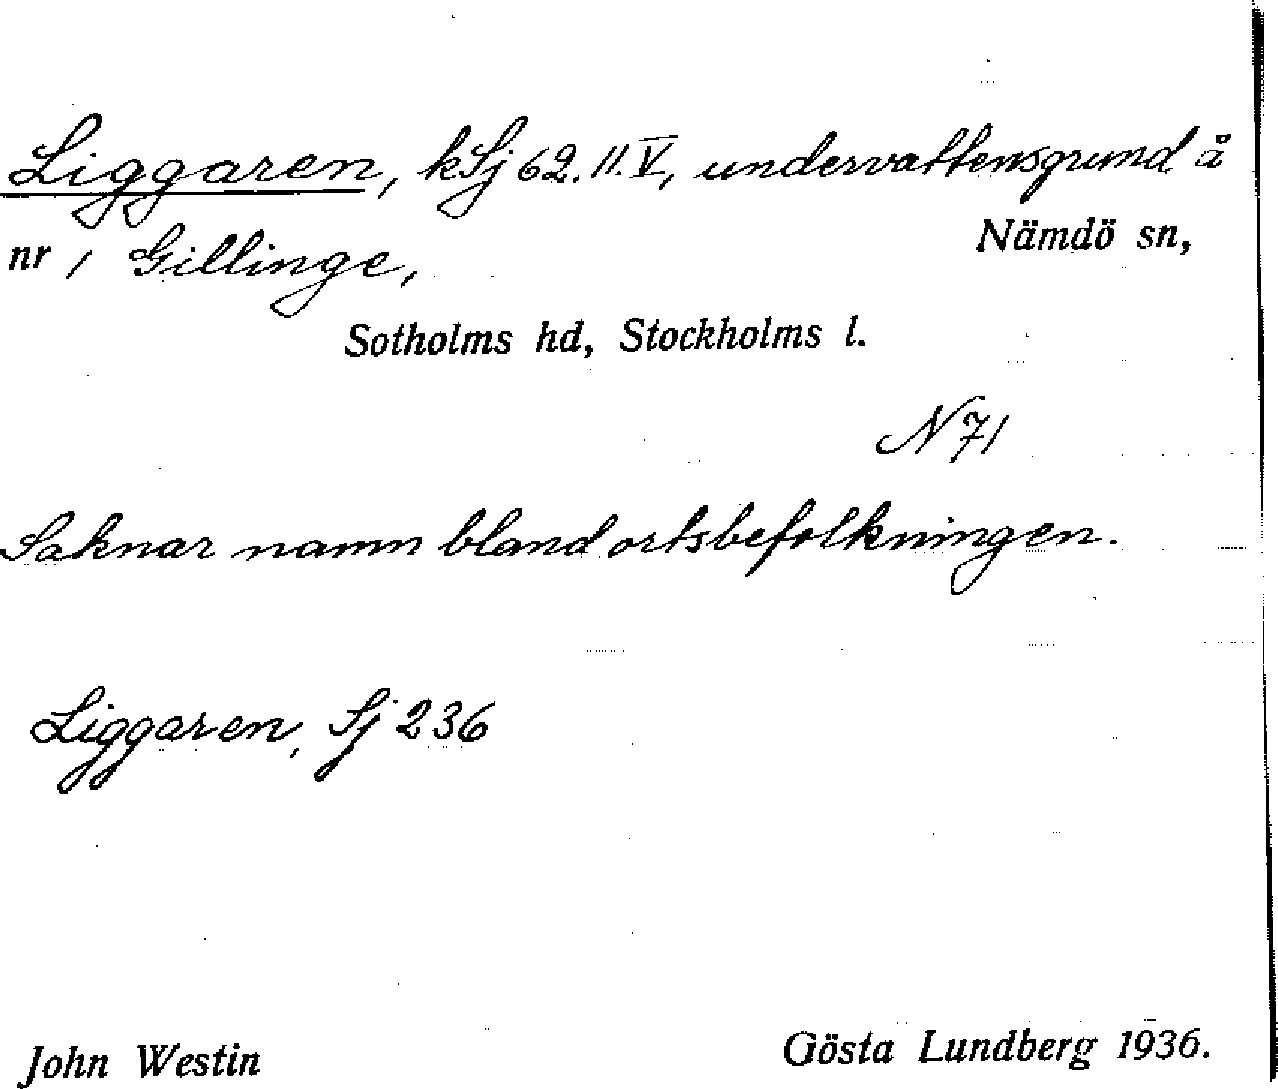 Liggaren, kSj 62.11.V, undervattensgrund å
nr 1 Gillinge, Nämdö sn,
Sotholms hd, Stockholms l.
N 71
Saknar namn bland ortsbefolkningen.
Liggaren, Sj 236
John Westin Gösta Lundberg 1936.